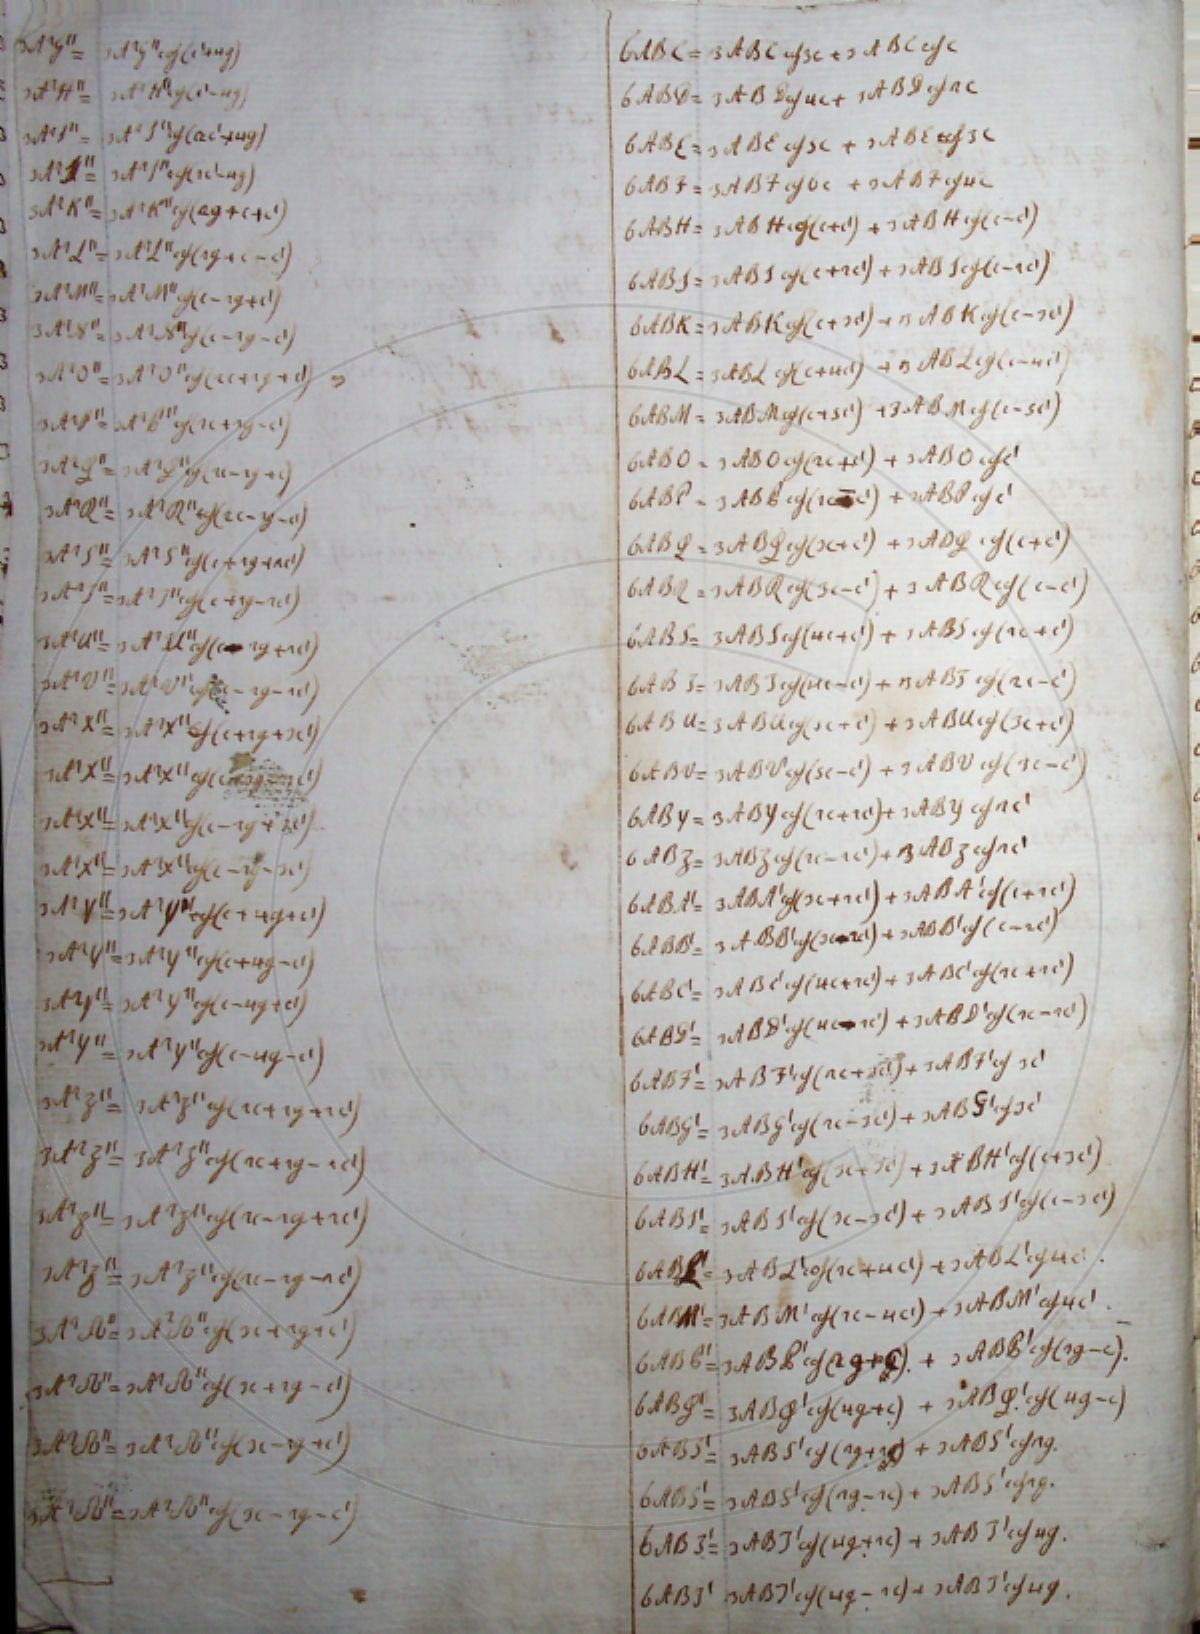 3A²G"= 3A²G"cof(c'+4g)
3A²H"= 3A²H"cof(c'-4g)
3A²I"= 3A²I"cof(2c'+4g)
3A²I"= 3A²I"cof(2c'-4g)
3A²K"= 3A²K"cof(2g+c+c')
3A²L"= 3A²L"cof(2g+c-c')
3A²M"= 3A²M"cof(c-2g+c')
3A²N"= 3A²N"cof(c-2g-c')
3A²O"= 3A²O"cof(2c+2g+c')
3A²P"= 3A²P"cof(2c+2g-c')
3A²Q"= 3A²Q"cof(2c-2g+c')
3A²R"= 3A²R"cof(2c-2g-c')
3A²S"= 3A²S"cof(c+2g+2c')
3A²T"= 3A²T"cof(c+2g-2c')
3A²U"= 3A²U"cof(c-2g+2c')
3A²V"= 3A²V"cof(c-2g-2c')
3A²X"= 3A²X"cof(c+2g+3c')
3A²X"= 3A²X"cof(c+2g-3c')
3A²X"= 3A²X"cof(c-2g+3c')
3A²X"= 3A²X"cof(c-2g-3c')
3A²Y"= 3A²Y"cof(c+4g+c')
3A²Y"= 3A²Y"cof(c+4g-c')
3A²Y"= 3A²Y"cof(c-4g+c')
3A²Y"= 3A²Y"cof(c-4g-c')
3A²Z"= 3A²Z"cof(2c+2g+2c')
3A²Z"= 3A²Z"cof(2c+2g-2c')
3A²Z"= 3A²Z"cof(2c-2g+2c')
3A²Z"= 3A²Z"cof(2c-2g-2c')
3A²Æ"= 3A²Æ"cof(3c+2g+c')
3A²Æ"= 3A²Æ"cof(3c+2g-c')
3A²Æ"= 3A²Æ"cof(3c-2g+c')
3A²Æ"= 3A²Æ"cof(3c-2g-c')
6ABC= 3ABC cof3c + 3ABC cofc
6ABD= 3ABD cof4c + 3ABD cof2c
6ABE= 3ABE cof5c + 3ABE cof3c
6ABF= 3ABF cof6c + 3ABF cof4c
6ABH= 3ABH cof(c+c') + 3ABH cof(c-c')
6ABI= 3ABI cof(c+2c') + 3ABI cof(c-2c')
6ABK= 3ABK cof(c+3c') + 3ABK cof(c-3c')
6ABL= 3ABL cof(c+4c') + 3ABL cof(c-4c')
6ABM= 3ABM cof(c+5c') + 3ABM cof(c-5c')
6ABO= 3ABO cof(2c+c') + 3ABO cofc'
6ABP= 3ABP cof(2c-c') + 3ABP cofc'
6ABQ= 3ABQ cof(3c+c') + 3ABQ cof(c+c')
6ABR= 3ABR cof(3c-c') + 3ABR cof(c-c')
6ABS= 3ABS cof(4c+c') + 3ABS cof(2c+c')
6ABT= 3ABT cof(4c-c') + 3ABT cof(2c-c')
6ABU= 3ABU cof(5c+c') + 3ABU cof(3c+c')
6ABV= 3ABV cof(5c-c') + 3ABV cof(3c-c')
6ABY= 3ABY cof(2c+2c') + 3ABY cof2c'
6ABZ= 3ABZ cof(2c-2c') + 3ABZ cof2c'
6ABA'= 3ABA'cof(3c+2c') + 3ABA'cof(c+2c')
6ABB'= 3ABB'cof(3c-2c') + 3ABB'cof(c-2c')
6ABC'= 3ABC'cof(4c+2c') + 3ABC'cof(2c+2c')
6ABD'= 3ABD'cof(4c-2c') + 3ABD'cof(2c-2c')
6ABF'= 3ABF'cof(2c+3c') + 3ABF'cof 3c'
6ABG'= 3ABG'cof(2c-3c') + 3ABG'cof3c'
6ABH'= 3ABH'cof(3c+3c') + 3ABH'cof(c+3c')
6ABI'= 3ABI'cof(3c-3c') + 3ABI'cof(c-3c')
6ABL'= 3ABL'cof(2c+4c') + 3ABL'cof4c'.
6ABM'= 3ABM'cof(2c-4c') + 3ABM'cof4c'.
6ABP'= 3ABP'cof(2g+c). + 3ABP'cof(2g-c).
6ABQ'= 3ABQ'cof(4g+c) + 3ABQ'cof(4g-c)
6ABS'= 3ABS'cof(2g+2c) + 3ABS'cof2g.
6ABS'= 3ABS'cof(2g-2c) + 3ABS'cof2g.
6ABT'= 3ABT'cof(4g+2c) + 3ABT'cof4g.
6ABT' 3ABT'cof(4g-2c) + 3ABT'cof4g.